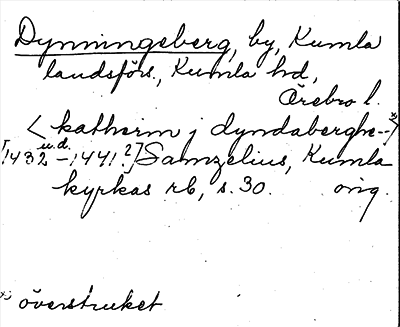 Dynningeberg, by, Kumla
landsförs., Kumla hd,
Örebro l.
<katherin j dyndaberghe--> x)
[1432 u.d. -1441?] Samzelius, Kumla
kyrkas rb, s. 30. orig.
x) överstruket